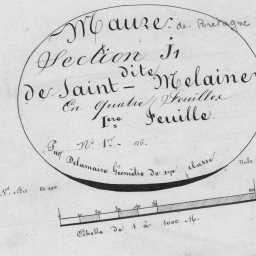 Mauze. de Bretagne
Section J1
dite
de Saint-Melaine
En quatre feuilles
1ere Feuille
Par Delamaire Géomètre de 1ere classe
Echelle de 1 à 1000 M.